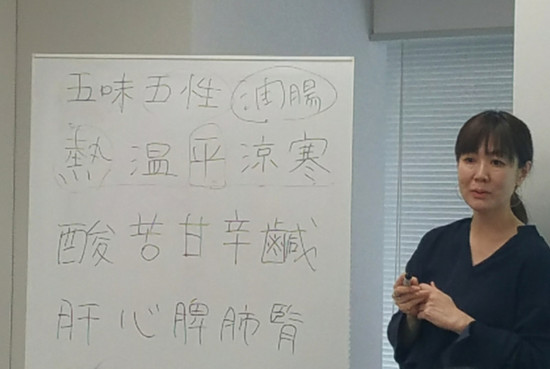 五味五性 潤腸
熱温平涼寒
酸苦甘辛鹹
肝心脾肺腎